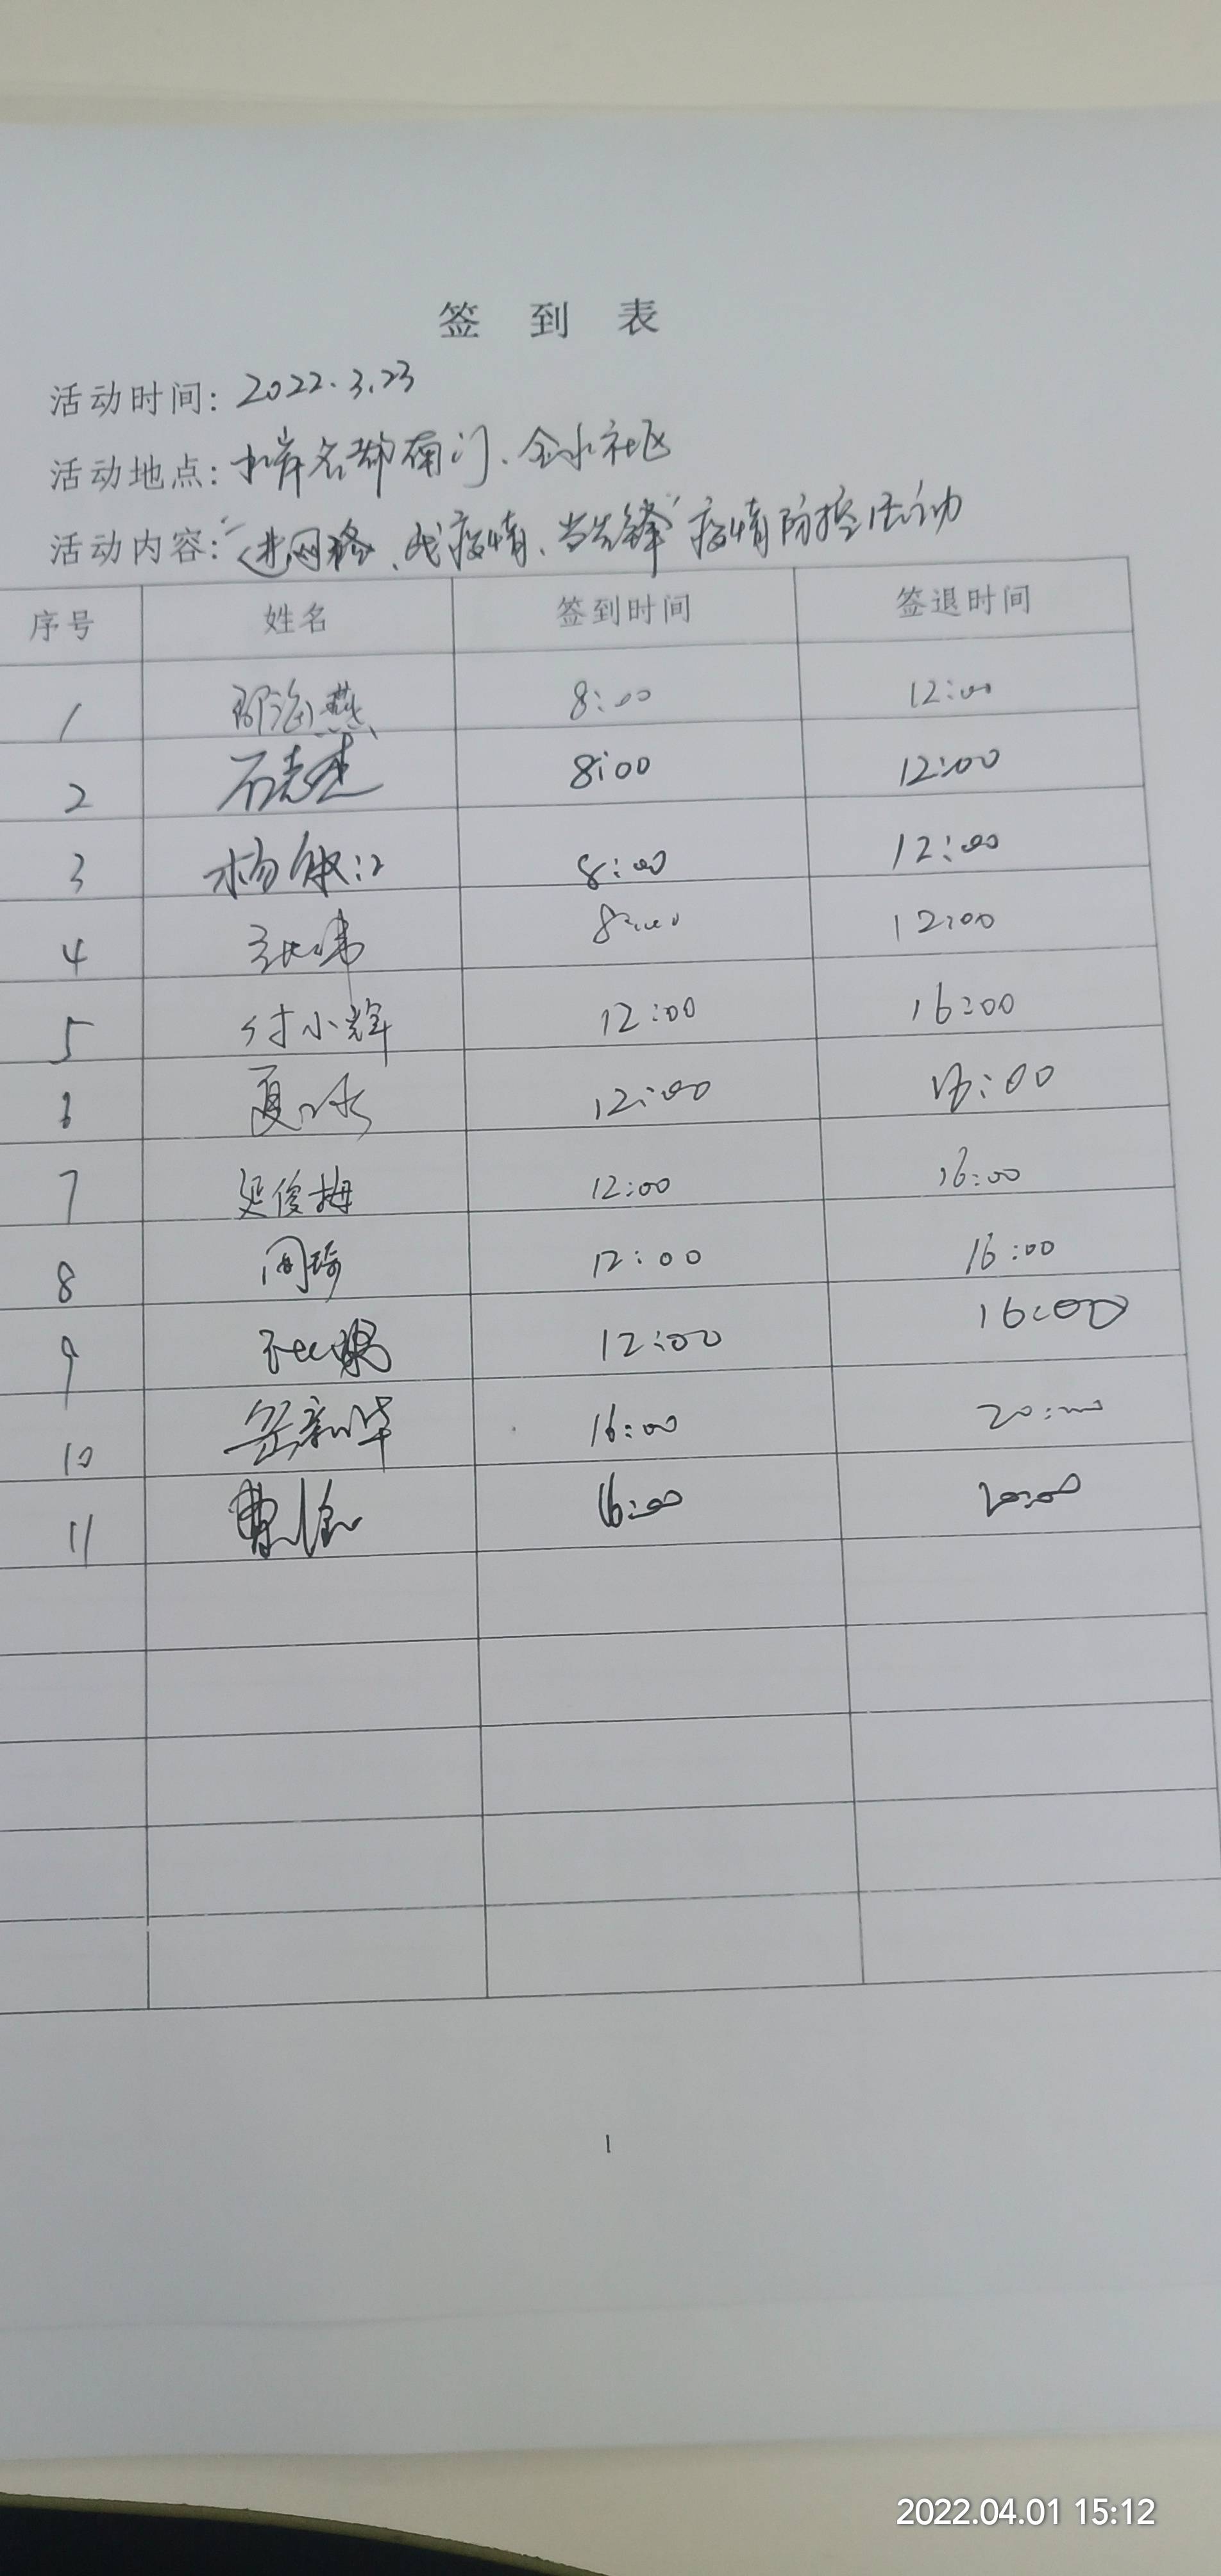 签到表
活动时间: 2022.3.23
活动地点: 水岸名都南门、金水社区
活动内容: "进网格、战疫情、当先锋"疫情防控活动
序号 姓名 签到时间 签退时间
1 邵海燕 8:00 12:00
2 石志杰 8:00 12:00
3 杨敏江 8:00 12:00
4 8:00 12:00
5 付小辉 12:00 16:00
6 夏冰 12:00 16:00
7 延俊梅 12:00 16:00
8 周琦 12:00 16:00
9 12:00 16:00
10 16:00 20:00
11 16:00 20:00
1
2022.04.01 15:12